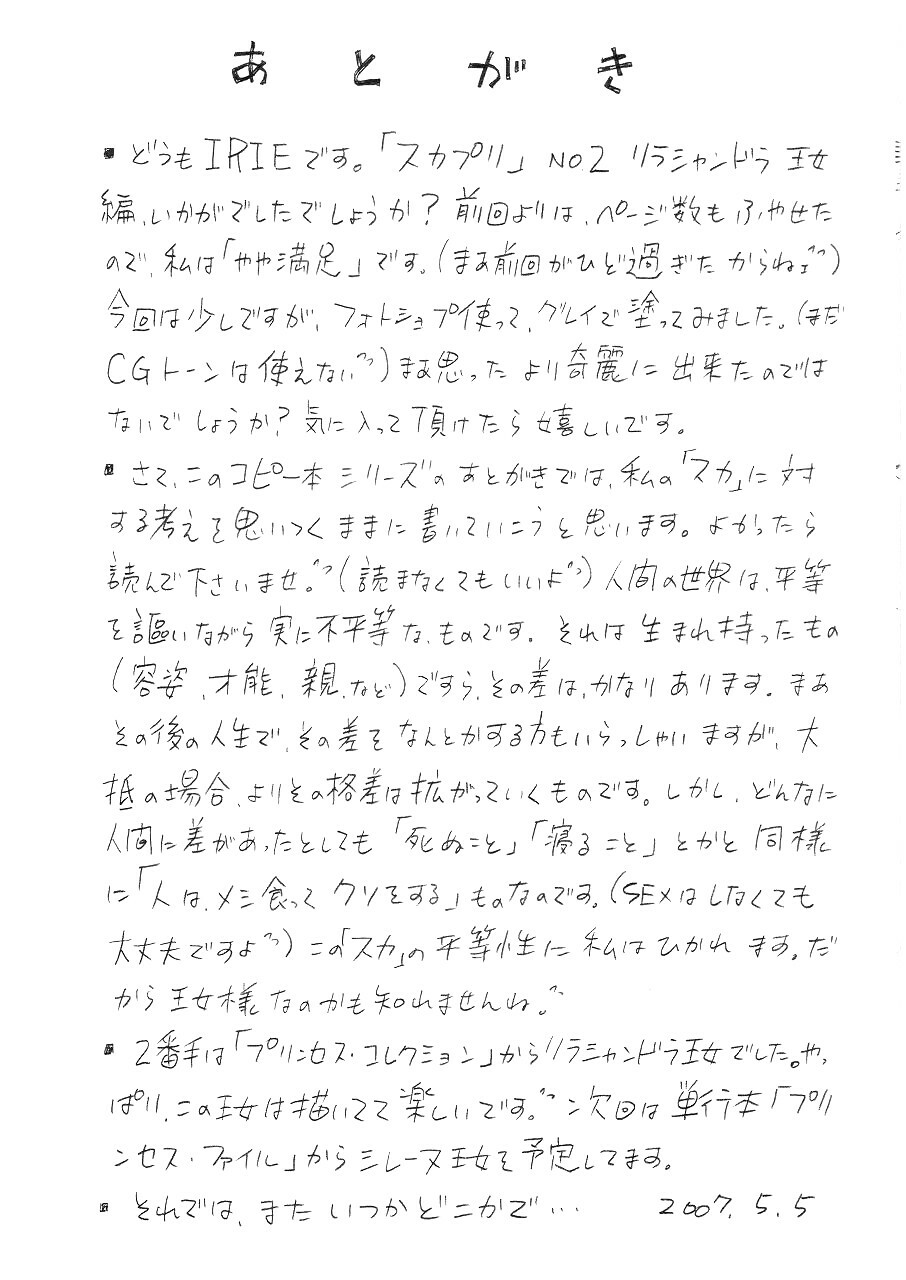 あとがき
■どうもIRIEです。「スカプリ」NO.2 リラシャンドラ王女
編、いかがでしたでしょうか？前回よりは、ページ数もふやせた
ので、私は「やや満足」です。(まあ前回がひど過ぎたからねェ^^)
今回は少しですが、フォトショップ使って、グレイで塗ってみました。(まだ
CGトーンは使えない^^)まあ思ったより奇麗に出来たのでは
ないでしょうか？気に入って頂けたら嬉しいです。
■さて、このコピー本シリーズのあとがきでは、私の「スカ」に対
する考えを思いつくままに書いていこうと思います。よかったら
読んで下さいませ。^^(読まなくてもいいよ^^)人間の世界は、平等
を謳いながら実に不平等な、ものです。それは生まれ持ったもの
(容姿、才能、親、など)ですら、その差は、かなりあります。まあ
その後の人生で、その差をなんとかする方もいらっしゃいますが、大
抵の場合、よりその格差は拡がっていくものです。しかし、どんなに
人間に差があったとしても「死ぬこと」「寝ること」とかと同様
に「人は、メシ食ってクソをする」ものなのです。(SEXはしなくても
大丈夫ですよ^^)この「スカ」の平等性に私はひかれます。だ
から王女様なのかも知れませんね。^^
■2番手は「プリンセス・コレクション」からリラシャンドラ王女でした。やっ
ぱり、この王女は描いてて楽しいです。^^次回は単行本「プリ
ンセス・ファイル」からミレーヌ王女を予定してます。
■それでは、またいつかどこかで… 2007.5.5